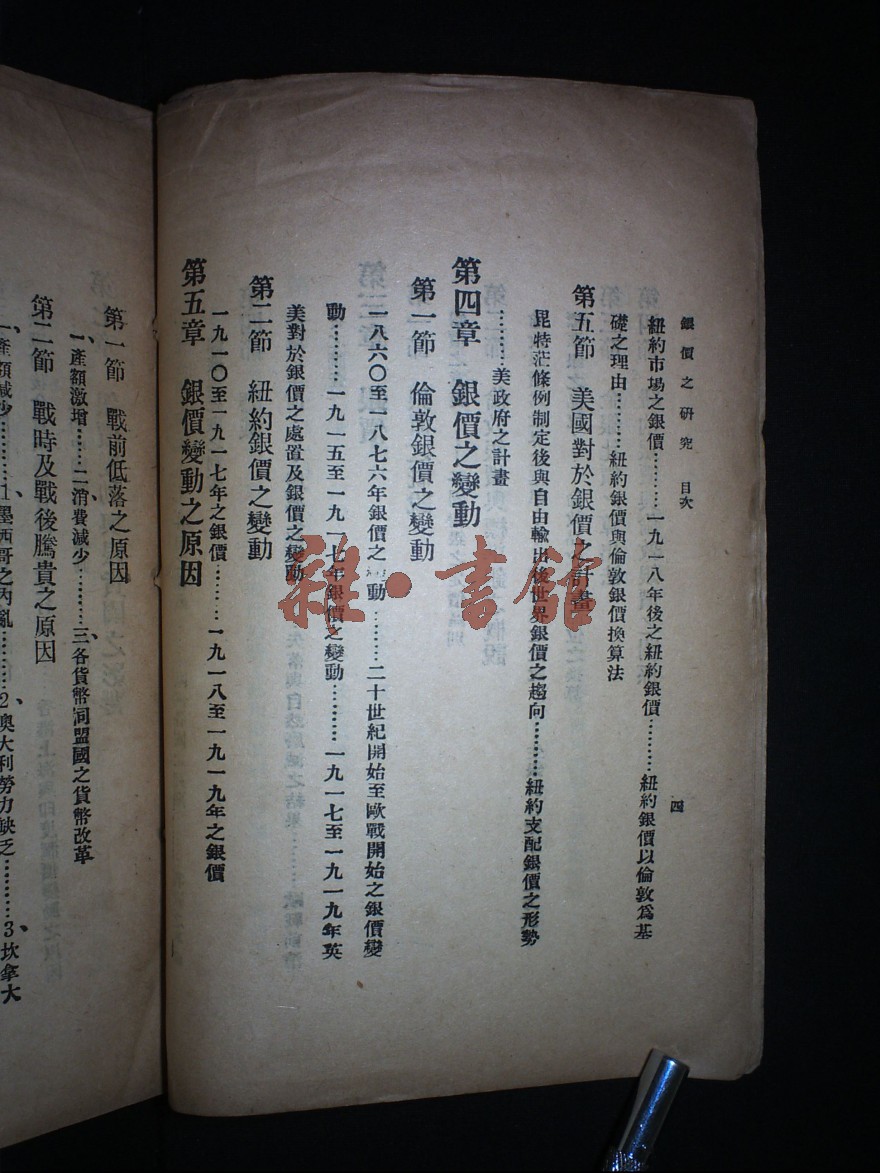 銀價之研究 目次 四
紐約市場之銀價………一九一八年後之紐約銀價………紐約銀價以倫敦爲基
礎之理由………紐約銀價與倫敦銀價換算法
第五節 美國對於銀價之計畫
毘特茫條例制定後與自由輸出後世界銀價之趨向………紐約支配銀價之形勢
………美政府之計畫
第四章 銀價之變動
第一節 倫敦銀價之變動
一八六〇至一八七六年銀價之動………二十世紀開始至歐戰開始之銀價變
動………一九一五至一九一七年銀價之變動………一九一七至一九一九年英
美對於銀價之處置及銀價之變動
第二節 紐約銀價之變動
一九一〇至一九一七年之銀價………一九一八至一九一九年之銀價
第五章 銀價變動之原因
第一節 戰前低落之原因
一、產額激增………二、消費減少………三、各貨幣同盟國之貨幣改革
第二節 戰時及戰後騰貴之原因
一、產額減少………1、墨西哥之內亂………2、奧大利勞力缺乏………3、坎拿大
雜·書館